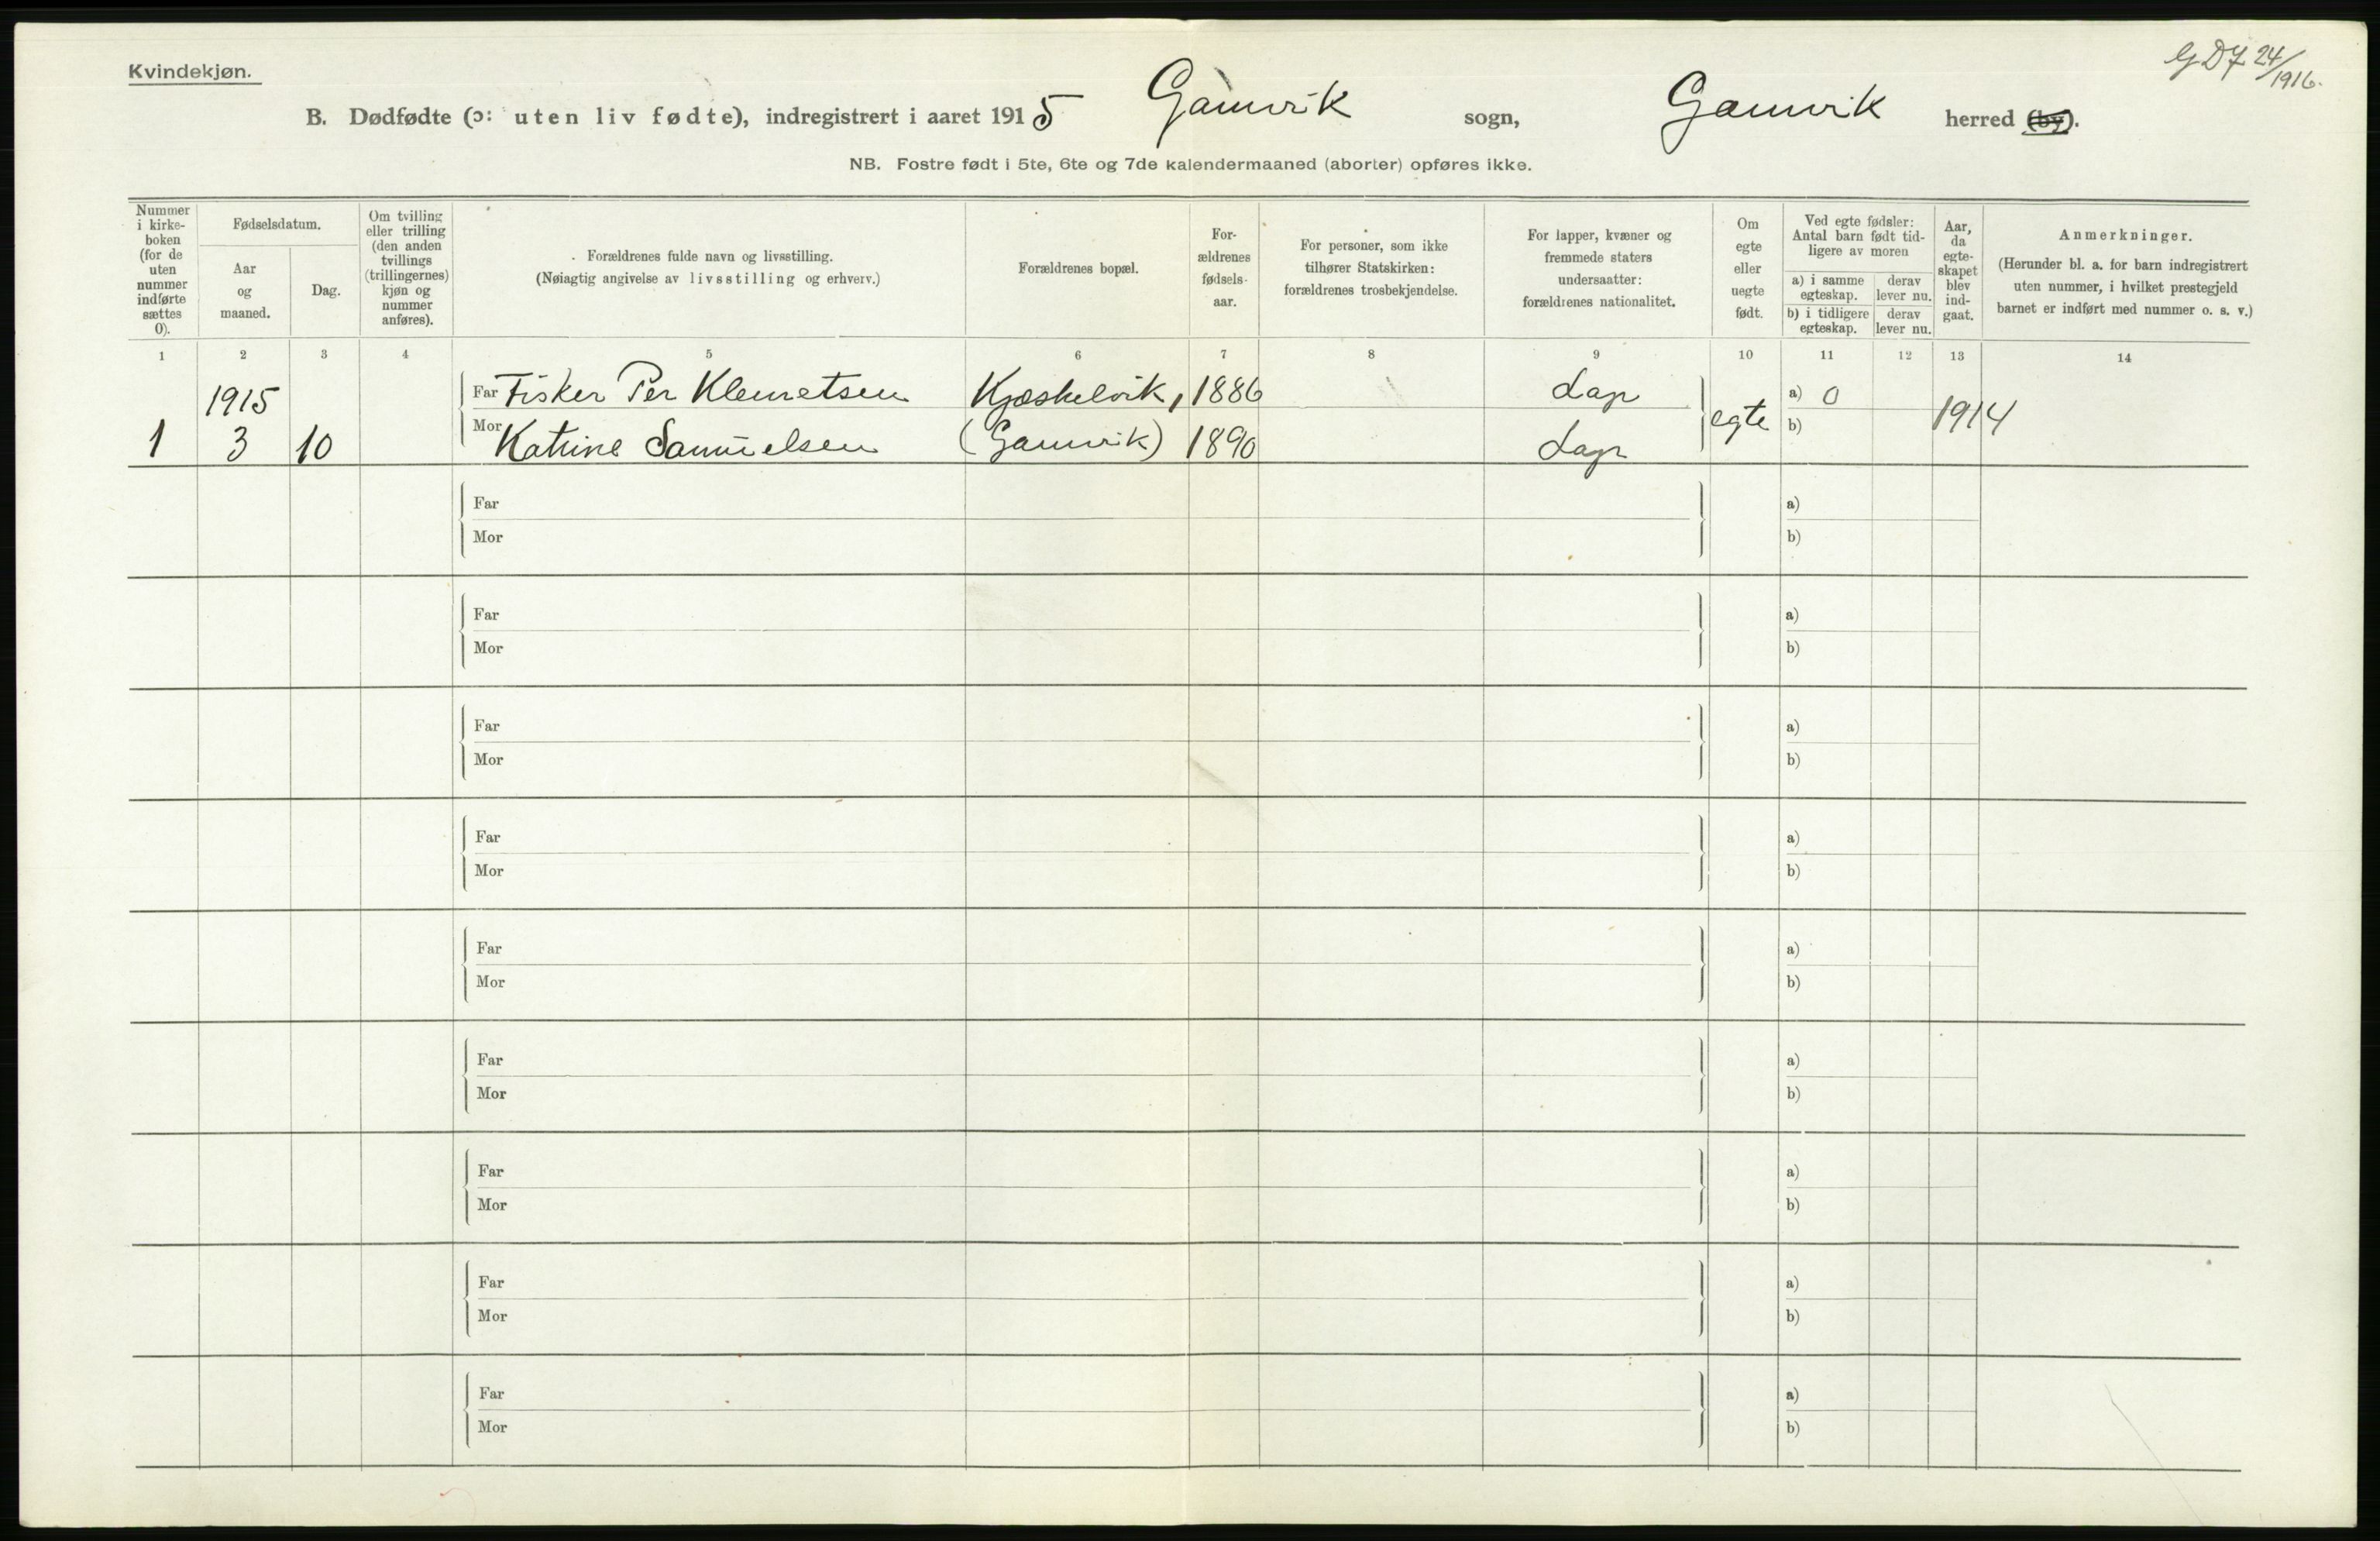 Kvindekjøn.
24/1916.
B. Dødfødte (ɔ: uten liv fødte), indregistrert i aaret 1915 Gamvik sogn, Gamvik herred (by).
NB. Fostre født i 5te, 6te og 7de kalendermaaned (aborter) opføres ikke.
Nummer
i kirke-
boken
(for de
uten
nummer
indførte
sættes
0).
Fødselsdatum.
Aar
og
maaned.
Dag.
Om tvilling
eller trilling
(den anden
tvillings
(trillingernes)
kjøn og
nummer
anføres).
Forældrenes fulde navn og livsstilling.
(Nøiagtig angivelse av livsstilling og erhverv.)
Forældrenes bopæl.
For-
ældrenes
fødsels-
aar.
For personer, som ikke
tilhører Statskirken:
forældrenes trosbekjendelse.
For lapper, kvæner og
fremmede staters
undersaatter:
forældrenes nationalitet.
Om
egte
eller
uegte
født.
Ved egte fødsler:
Antal barn født tid-
ligere av moren
a) i samme
egteskap.
derav
lever nu.
b) i tidligere
egteskap.
derav
lever nu.
Aar,
da
egte-
skapet
blev
ind-
gaat.
Anmerkninger.
(Herunder bl. a. for barn indregistrert
uten nummer, i hvilket prestegjeld
barnet er indført med nummer o. s. v.)
1 2 3 4 5 6 7 8 9 10 11 12 13 14
1915 Far Fisker Per Klemetsen 1886 Lap a) 0
1 3 10 Mor Katrine Samuelsen (Gamvik) 1890 Lap egte b) 1914
Far a)
Mor b)
Far a)
Mor b)
Far a)
Mor b)
Far a)
Mor b)
Far a)
Mor b)
Far a)
Mor b)
Far a)
Mor b)
Far a)
Mor b)
Far a)
Mor b)